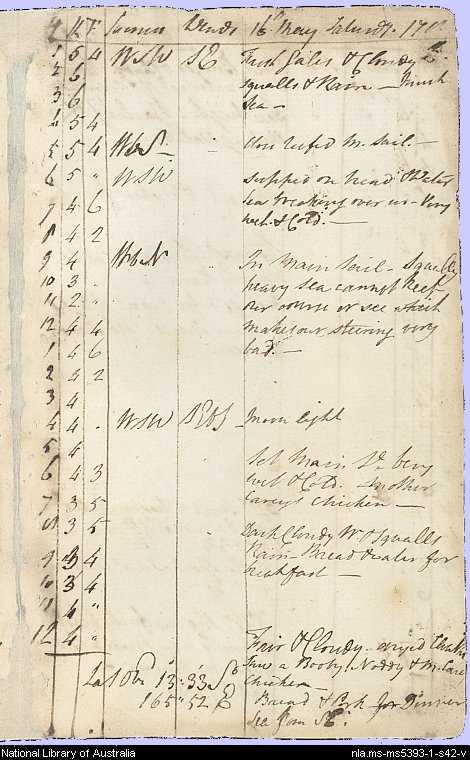 H K F Courses Winds 16th May Saturdy. 178
1 5 4 WSW SE Fresh Gales & Cloudy
2 6 squalls & Rain - Much
3 6 Sea -
4 5 4
5 5 4 WbS " Close reefd M. Sail. -
6 5 " WSW supped on bread & Water
7 4 6 sea breaking over us - Very
8 4 2 wet & Cold. -
9 4 WbN " In Main Sail - Squally
10 3 . heavy sea cannot keep
11 2 " our course or see which
12 4 4 makes our steering very
1 4 6 bad. -
2 4 2
3 4
4 4 . WSW SEbS - Moon light
5 4
6 4 3 Set Main Sl. very
7 3 5 wet & Cold. Another
Careys Chicken -
8 3 5 Dark Cloudy Wr & Squalls
9 3 4 Rain - Bread & water for
10 3 4 breakfast -
11 4 "
12 4 " Fair & Cloudy
Saw a Booby, Noddy & M. Care
Lat Obs 13°.33 So Chicken -
165" 52 E Bread & Pork for Dinner
Sea from SE.
National Library of Australia nla.ms-ms5393-1-s42-v